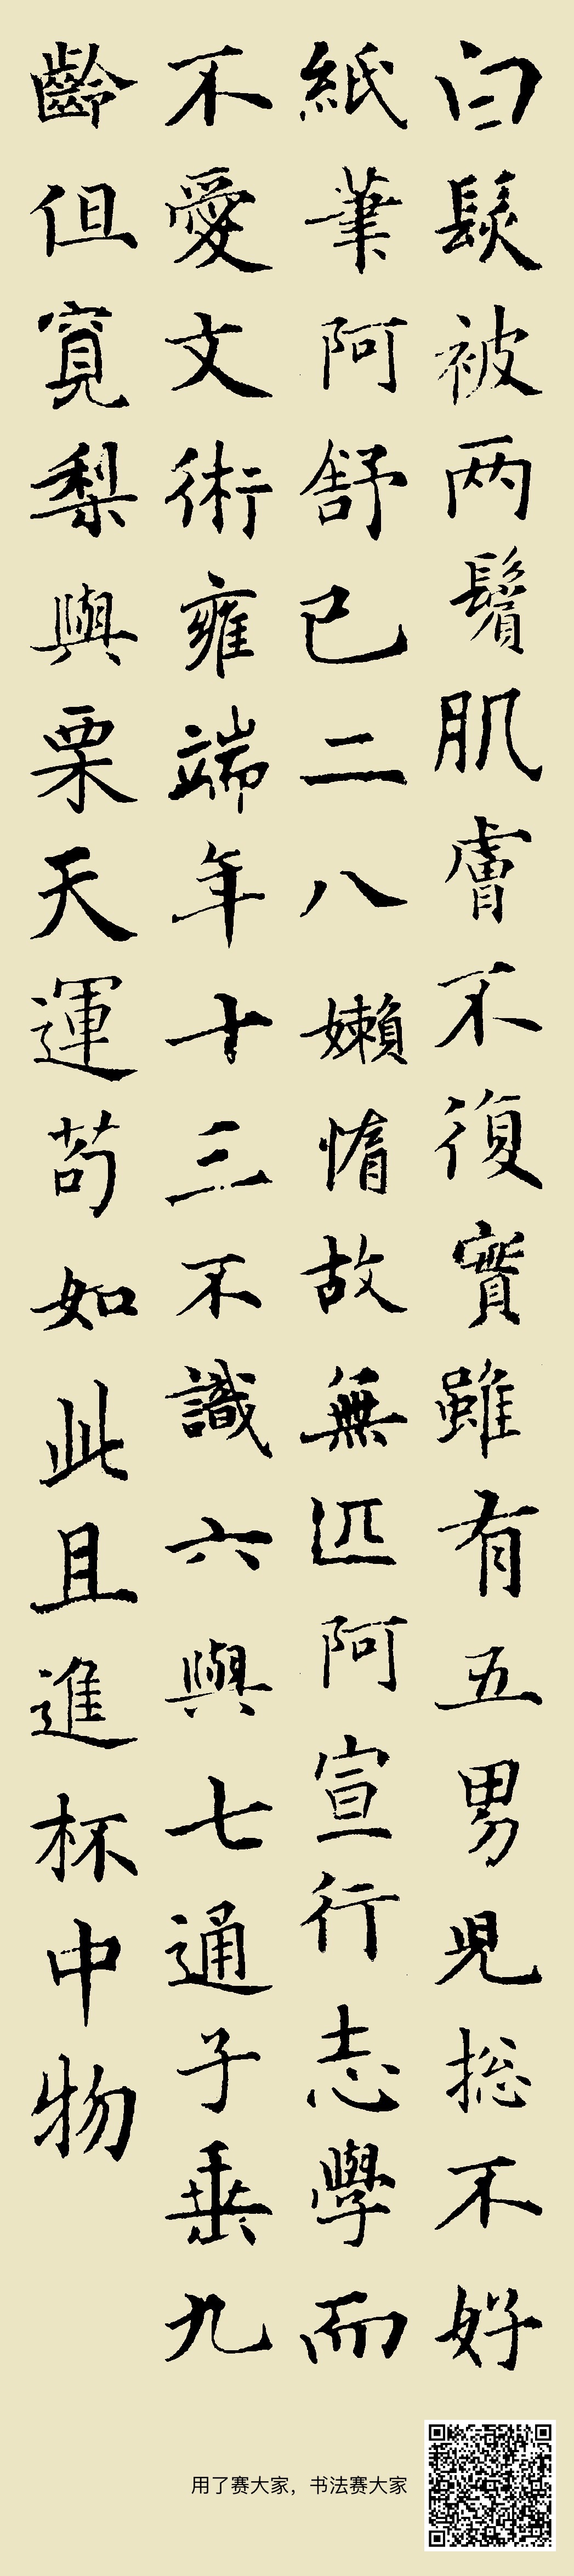 白髮被两鬢肌膚不復實雖有五男兒捴不好
紙筆阿舒已二八嬾惰故無匹阿宣行志學而
不愛文術雍端年十三不識六與七通子垂九
齡但覓梨與栗天運苟如此且進杯中物
用了赛大家，书法赛大家